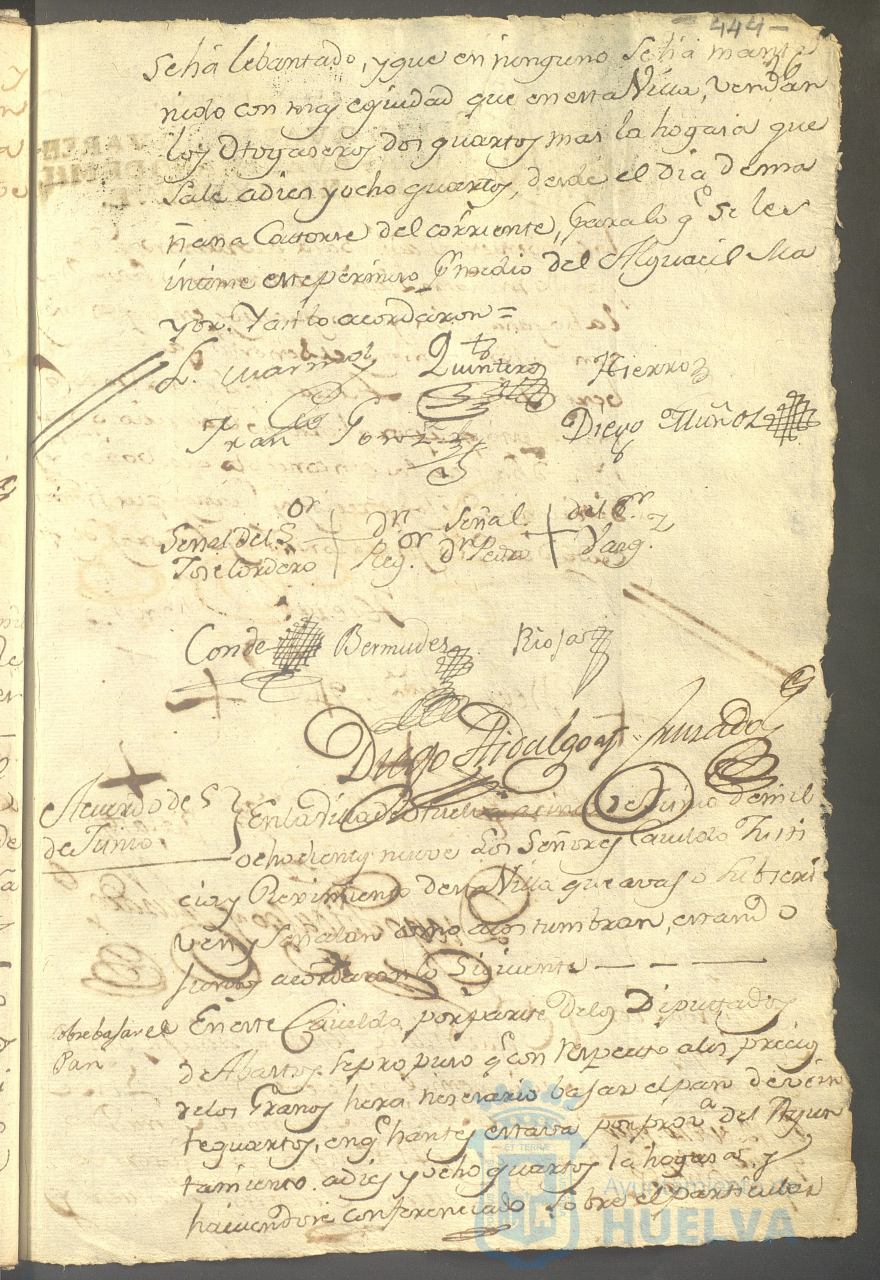 444-
26
se há lebantado, y que en ninguno se ha mante
nido con mas equidad que en esta Villa, vendan
los Dtos aseros dos quartos mas la hogasa que
sale a dies y ocho quartos, desde el dia de ma
ñana Catorse del corriente, para lo q.^e se les
intime este permiso p.^r medio del Alguacil Ma
yor. Y asi lo acordaron =
L. Marmol Quintero Hierro
Fran^co Gonz^z Diego Muñoz
Señal del S^or + d^n Señal + del S^r
Jose Cordero Reg.^or d^n Pedro Varg.^z
Conde Bermudes Riojas
Diego Hidalgo Cruzado
Acuerdo de 5
de Junio
En la Villa de Huelva a cinco de Junio de mil
ochocientos nueve Los Señores Cavildo Justi
cia y Reximiento de esta Villa que avajo subscri
ven y Señalan como acostumbran, estando
juntos acordaron lo Siguiente — — —
sobre bajar el
Pan
En este Cavildo, por parte de los Diputados
de Abastos, se propuso q.^e con respecto a los precios
de los Granos hera nesesario bajar el pan de vein
te quartos, en q.^e hantes estava por prov.^a del Ayun
tamiento. a dies y ocho quartos la hogasa, y
haviendose conferenciado sobre el particular
Ayuntamiento de
HUELVA